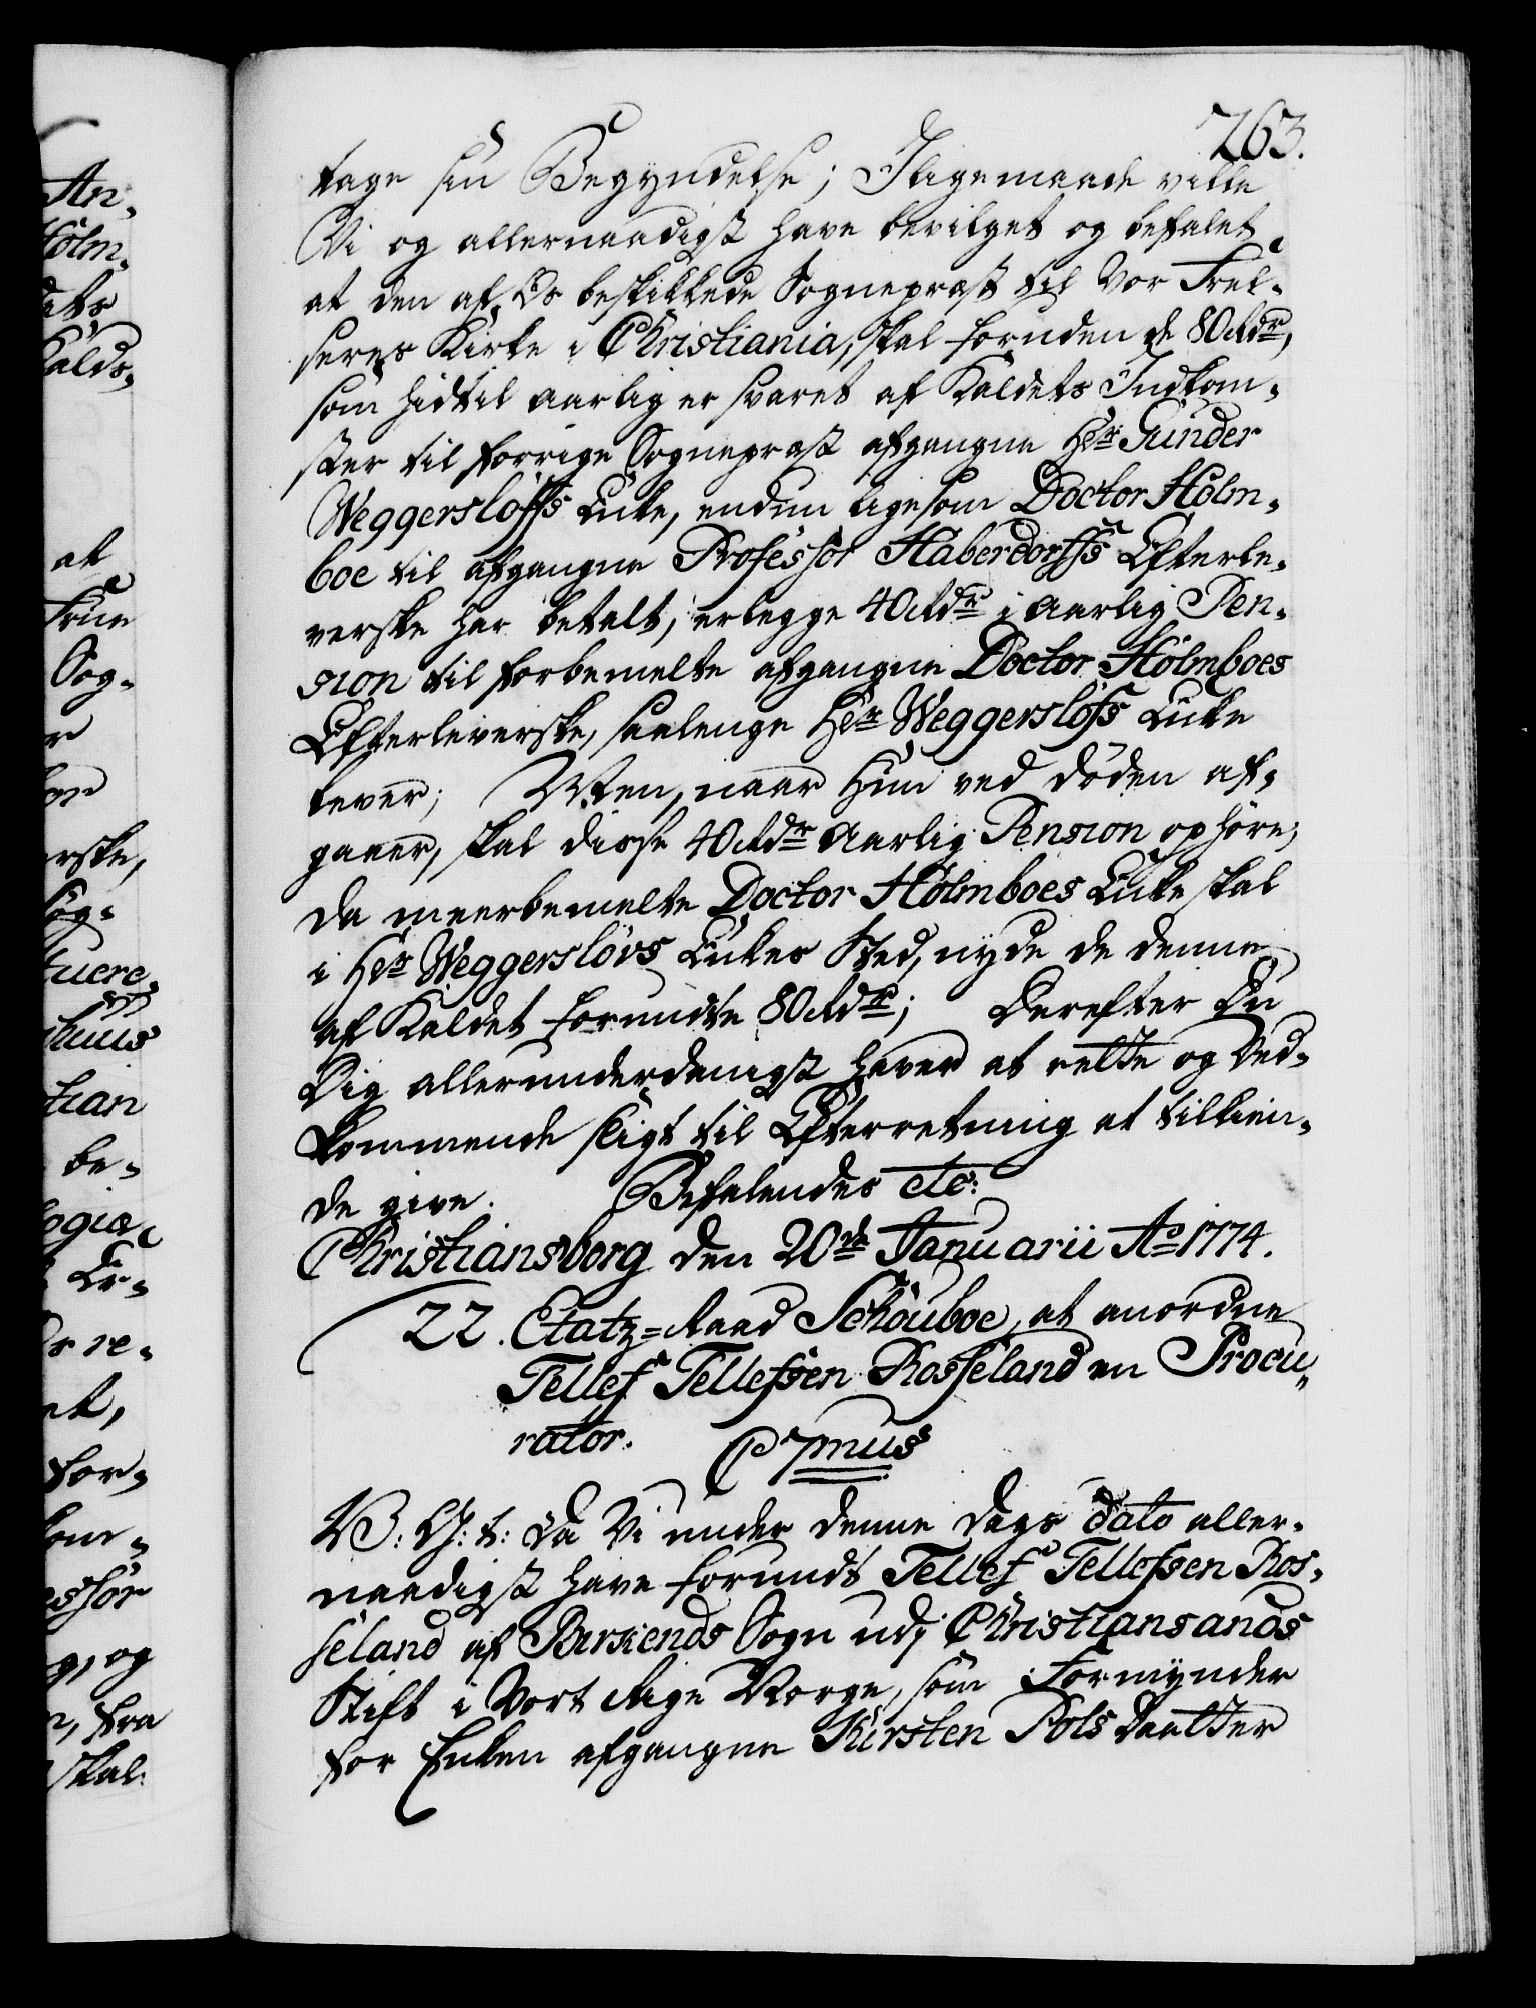 263.
tage sin Begÿndelse; Iligemaade ville
Vi og allernaadigst have bevilget og befalet,
at den af Os beskikkede Sognepræst til Vor Frel-
seres Kirke i Christiania, skal foruden de 80 Rdr,
som hidtil aarlig er svaret af Kaldets Indkom-
ster til forrige Sognepræst afgangne Hr Gunder
Weggerslöffs Enke, endnu ligesom Doctor Holm-
boe til afgangne Professor Haberdorffs Efterle-
verske har betalt, erlegge 40 Rdr i aarlig Pen-
sion til forbemelte afgangne Doctor Holmboes
Efterleverske, saalenge Hr Weggerslöfs Enke
lever; Men, naar Hun ved döden af-
gaaer, skal disse 40 Rdr aarlig Pension ophöre,
da meerbemelte Doctor Holmboes Enke skal
i Hr Weggerslövs Enkes Sted, nÿde de denne
af Kaldet forundte 80 Rdr; Derefter Du
Dig allerunderdanigst haver at rette og Ved-
kommende sligt til Efterretning at tilkien-
de give. Befalendes etc:
Christiansborg den 20de Januarii Ao 1774.
22. Etatz-Raad Schouboe, at anordne
Tellef Tellefsen Rosseland en Procu-
rator. C 7mus
V: G: t: Da Vi under denne Dags dato aller-
naadigst have forundt Tellef Tellefsen Ros-
seland af Birkends Sogn udj Christiansands
Stift i Vort Rige Norge, som Formÿnder
for Enken afgangne Kirsten Pols Daatter
An-
Holm-
Kalds-
at
Frue
Sog-
erske,
Sog-
tuere
huus
tian
be-
logiæ
Er-
re-
et,
for-
kom-
essor
og, og
n, fra
skal